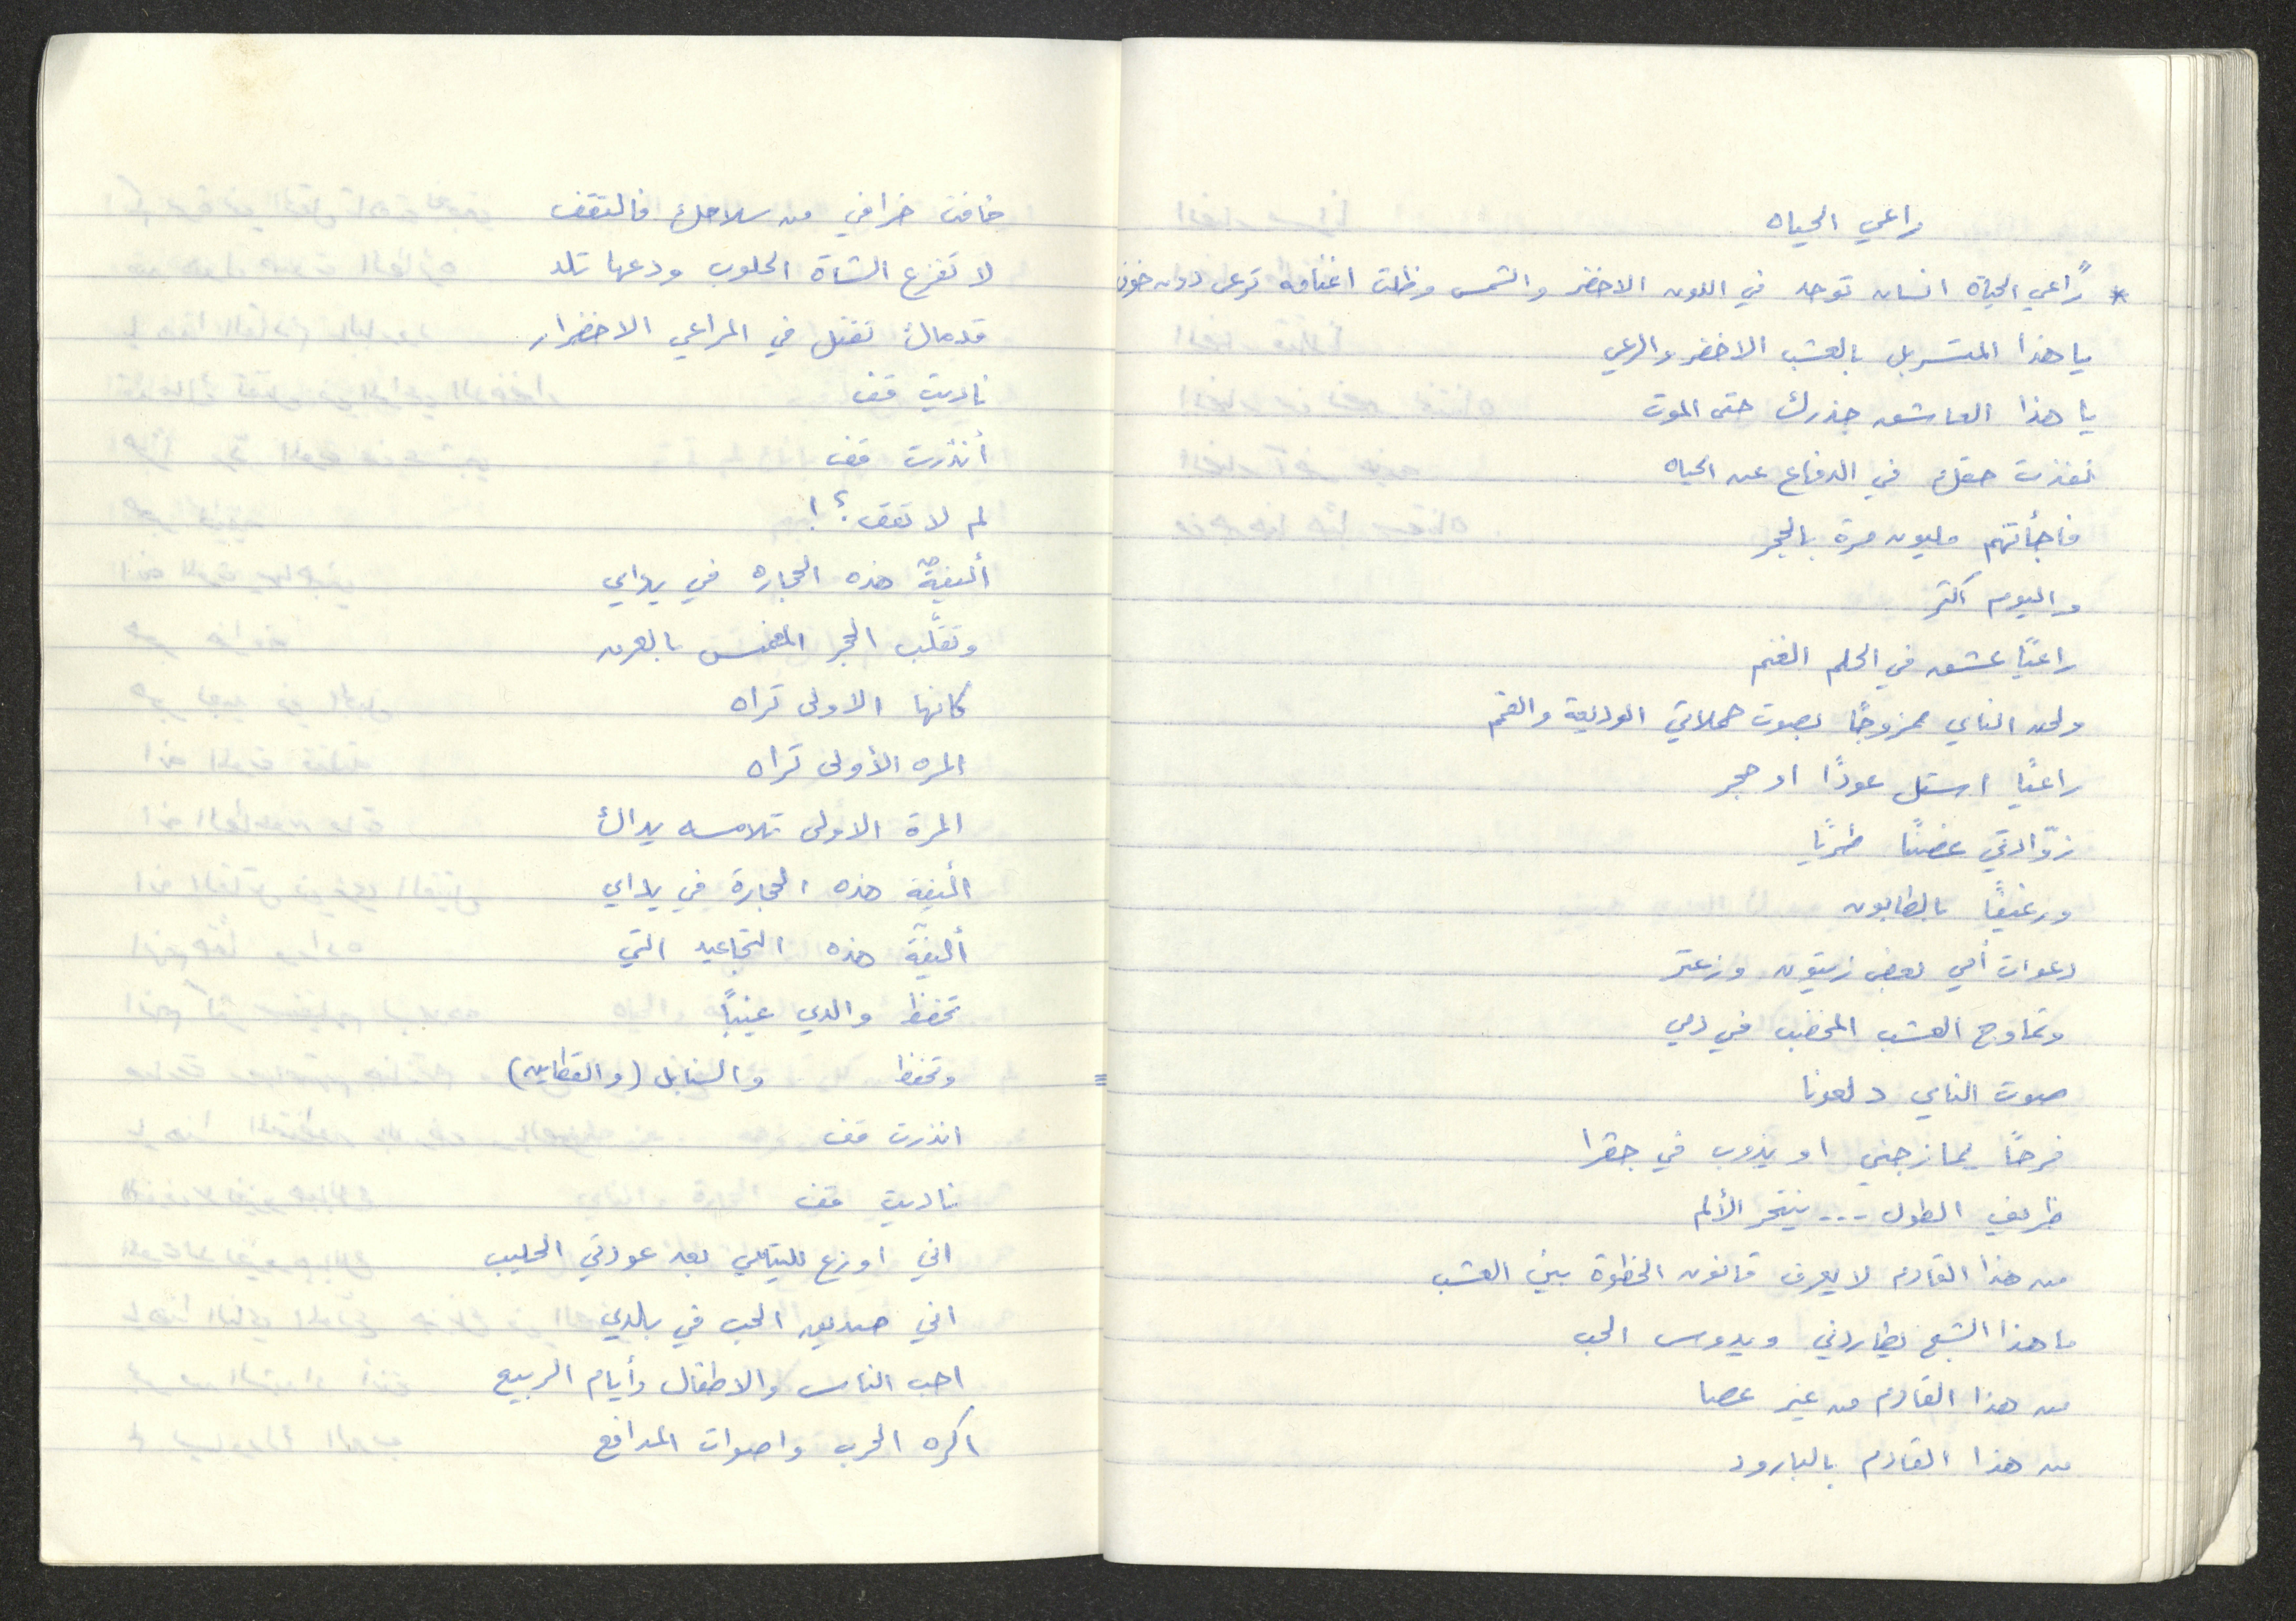 راعي الحياه
* راعي الحياة انسان توحد في اللون الاخضر والشمس وظلت اغنامه ترعى دون خوف
يا هذا المتسربل بالعشب الاخضر والرعي
يا هذا العاشق جذرك حتى الموت
نفذت حقك في الدفاع عن الحياه
فاجأتهم مليون مرة بالحجر
واليوم اكثر
راعيًا عشق في الحلم الغنم
ولحن الناي ممزوجًا بصوت حملاتي الوديعة والقمم
راعيًا استل عودًا او حجر
زوّادتي غصنًا طريًا
ورغيفًا بالطابون
دعوات أمي بعض زيتون وزعتر
وتماوج العشب المخضب في دمي
صوت الناي دلعونا
فرحًا يمازجني او يذوب في جفرا
ظريف الطول ... ينتحر الألم
من هذا القادم لا يعرف قانون الخطوة بين العشب
ما هذا الشبح يطاردني ويدوس الحب
من هذا القادم من غير عصا
من هذا القادم بالبارود
خافت خرافي من سلاحك فالتقف
لا تفزع الشاة الحلوب ودعها تلد
قدماك تقتل في المراعي الاخضرار
ناديت قف
أنذرت قف
لم لا تقف؟!
أليفةٌ هذه الحجاره في يداي
وتقلّب الحجر المغمس بالعرق
كانها الاولى تراه
المره الأولى تراه
المرة الاولى تلامسه يداك
أليفة هذه الحجارة في يداي
أليفةٌ هذه التجاعيد التي
تحفظ والدي غيبًا
وتحفظ والسنابل (والقطاين)
انذرت قف
ناديت قف
اني اوزع لليتامي بعد عودتي الحليب
اني صديق الحب في بلدي
احب الناس والاطفال وأيام الربيع
اكره الحرب واصوات المدافع